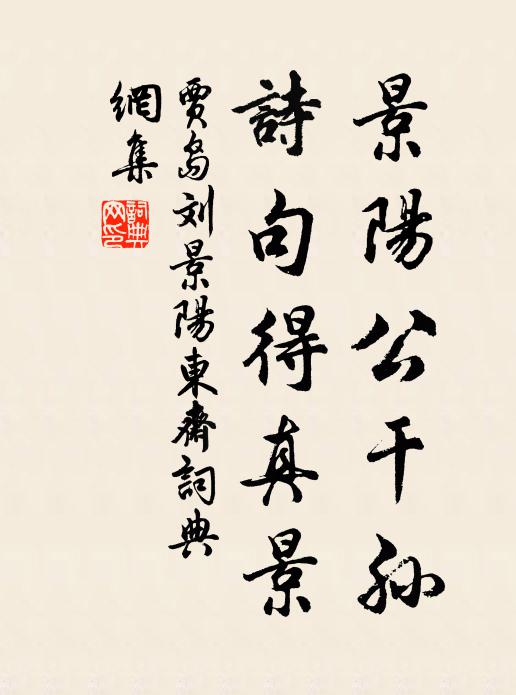 景陽公干孫
詩句得真景
賈島刘景陽東齋詞典
網集
詞典
网印